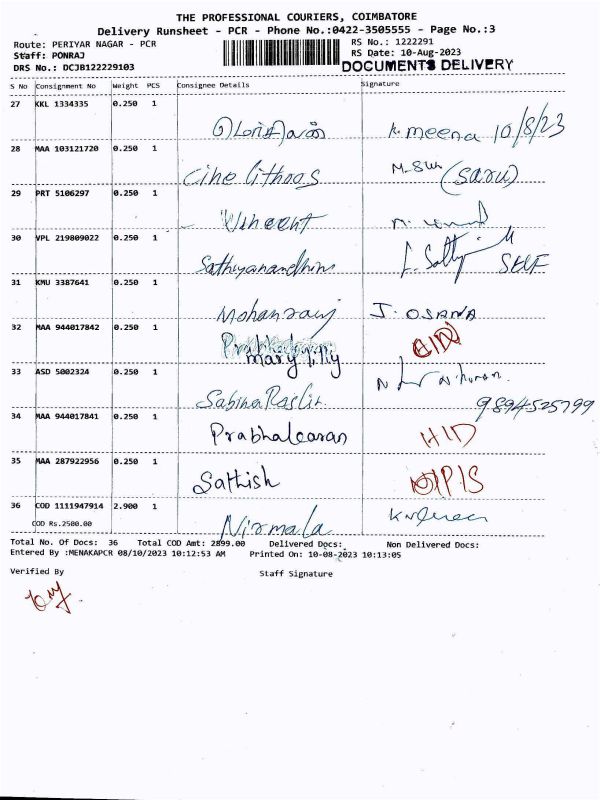 THE PROFESSIONAL COURIERS, COIMBATORE
Delivery Runsheet - PCR - Phone No.:0422-3505555 - Page No.:3
Route: PERIYAR NAGAR - PCR RS No.: 1222291
Staff: PONRAJ RS Date: 10-Aug-2023
DRS No.: DCJB122229103 DOCUMENTS DELIVERY
S No Consignment No Weight PCS Consignee Details Signature
27 KKL 1334335 0.250 1
K. meena 10/8/23
28 MAA 103121720 0.250 1
Cine lithoos (Saru)
29 PRT 5106297 0.250 1
Vincent
30 VPL 219809022 0.250 1
Sathiyanandhini SELF
31 KMU 3387641 0.250 1
Mohanraj J. OSANA
32 MAA 944017842 0.250 1
mary lilly
33 ASD 5002324 0.250 1
Sabina Raslin 9894525799
34 MAA 944017841 0.250 1
Prabhakaran HID
35 MAA 287922956 0.250 1
Sathish
36 COD 1111947914 2.900 1
COD Rs.2500.00
Nirmala
Total No. Of Docs: 36 Total COD Amt: 2899.00 Delivered Docs: Non Delivered Docs:
Entered By :MENAKAPCR 08/10/2023 10:12:53 AM Printed On: 10-08-2023 10:13:05
Verified By Staff Signature